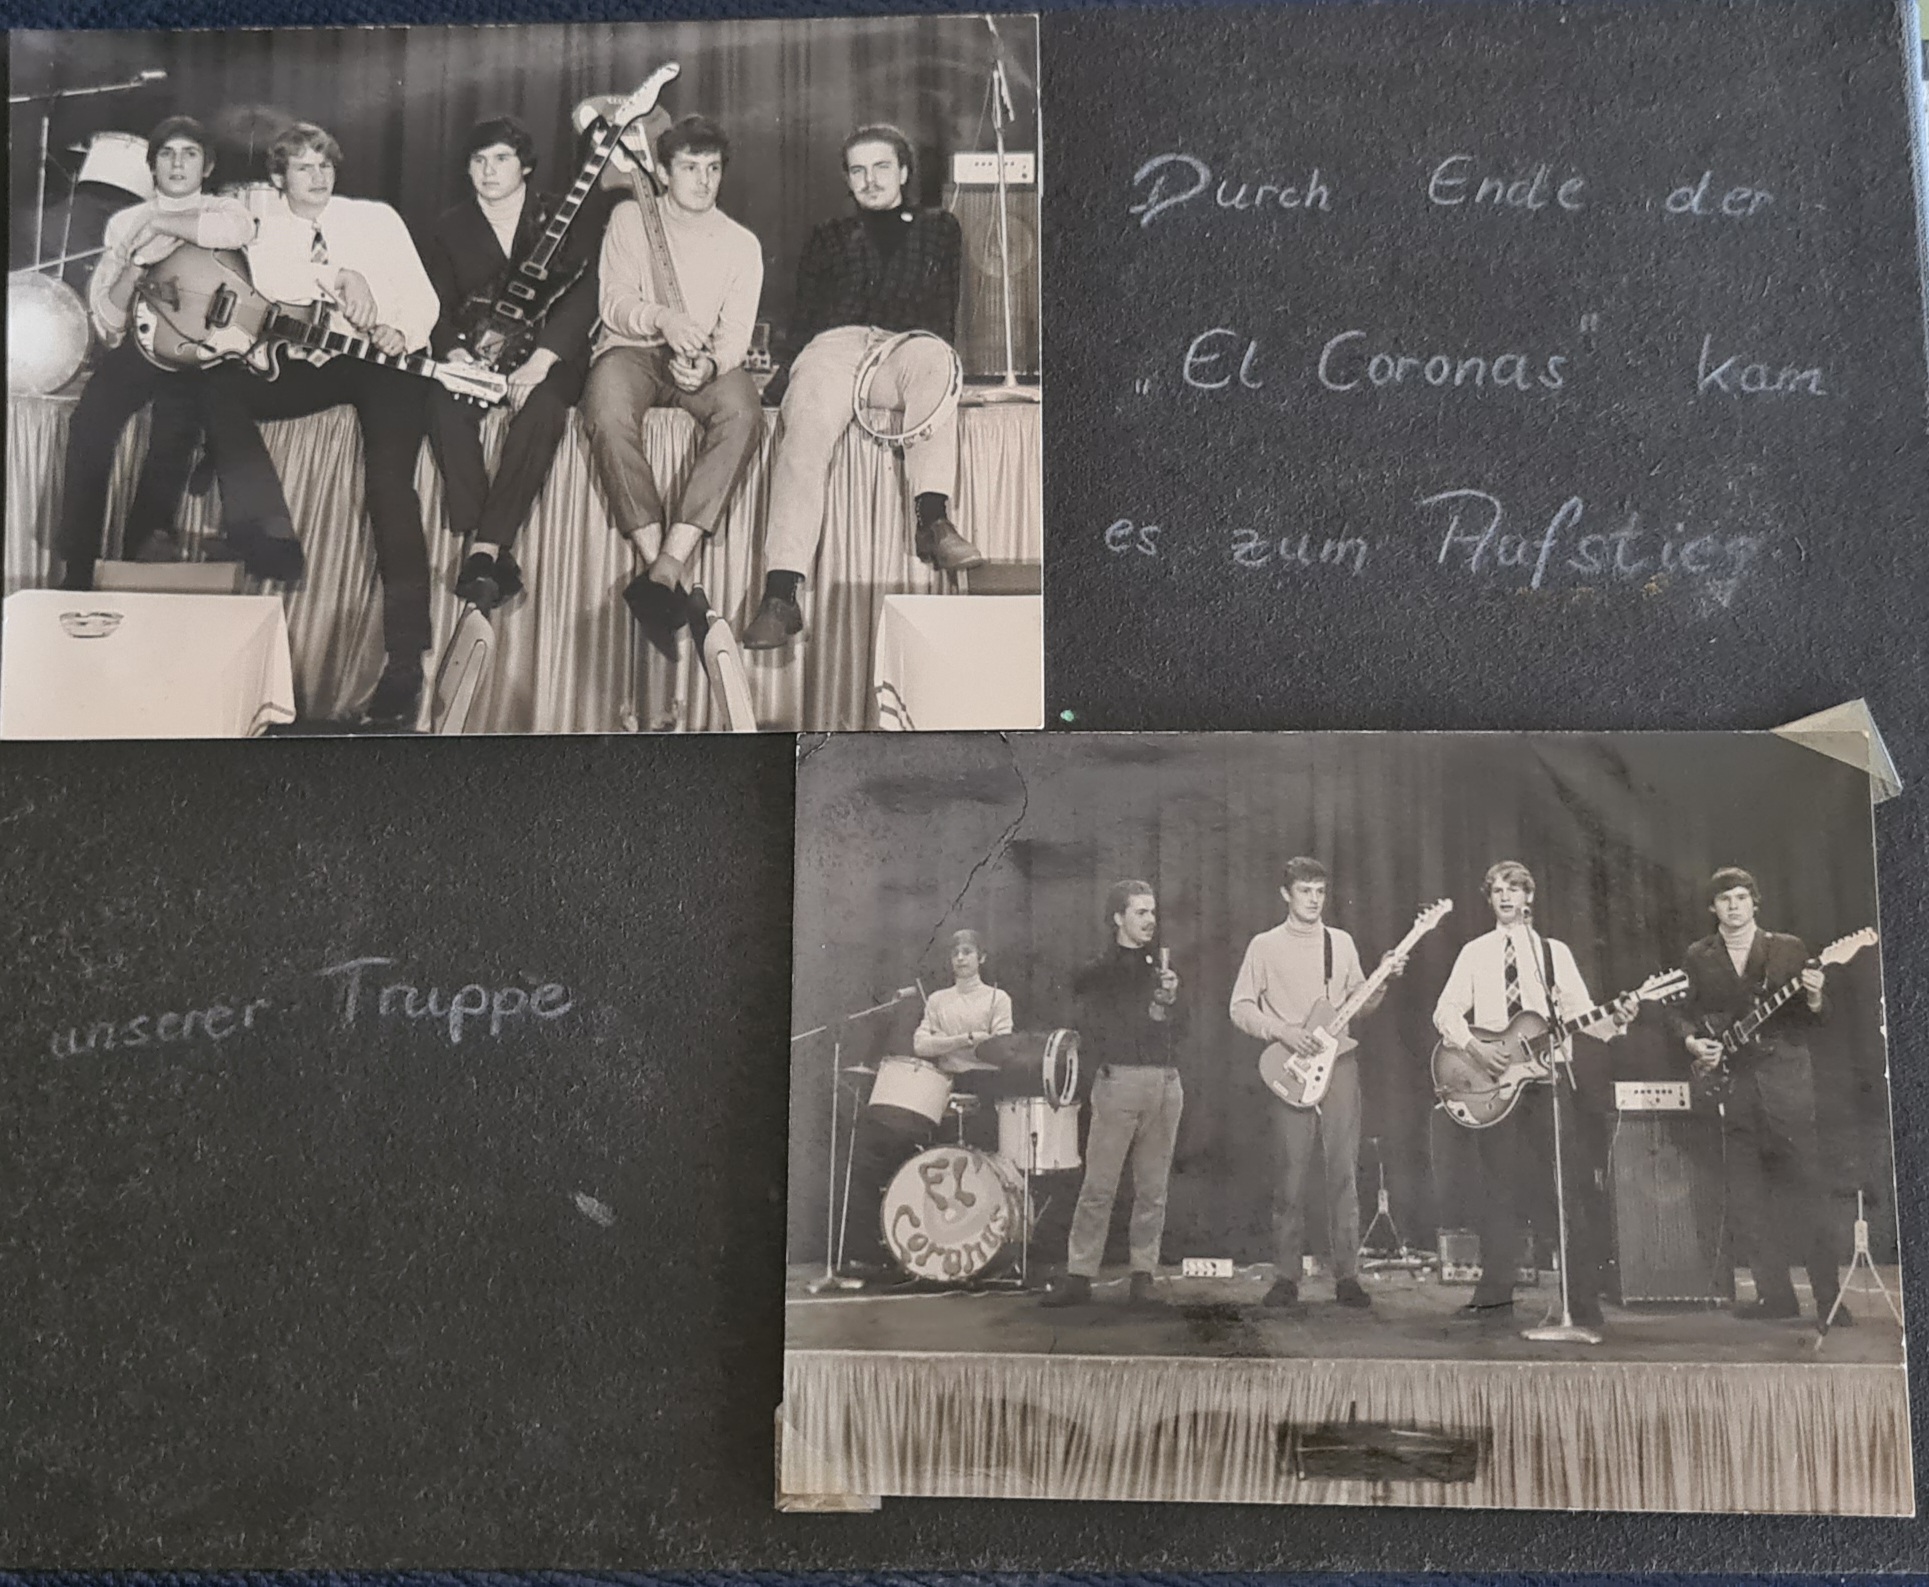 Durch Ende der
„El Coronas" kam
es zum Aufstieg
unserer Truppe
El
Coronas